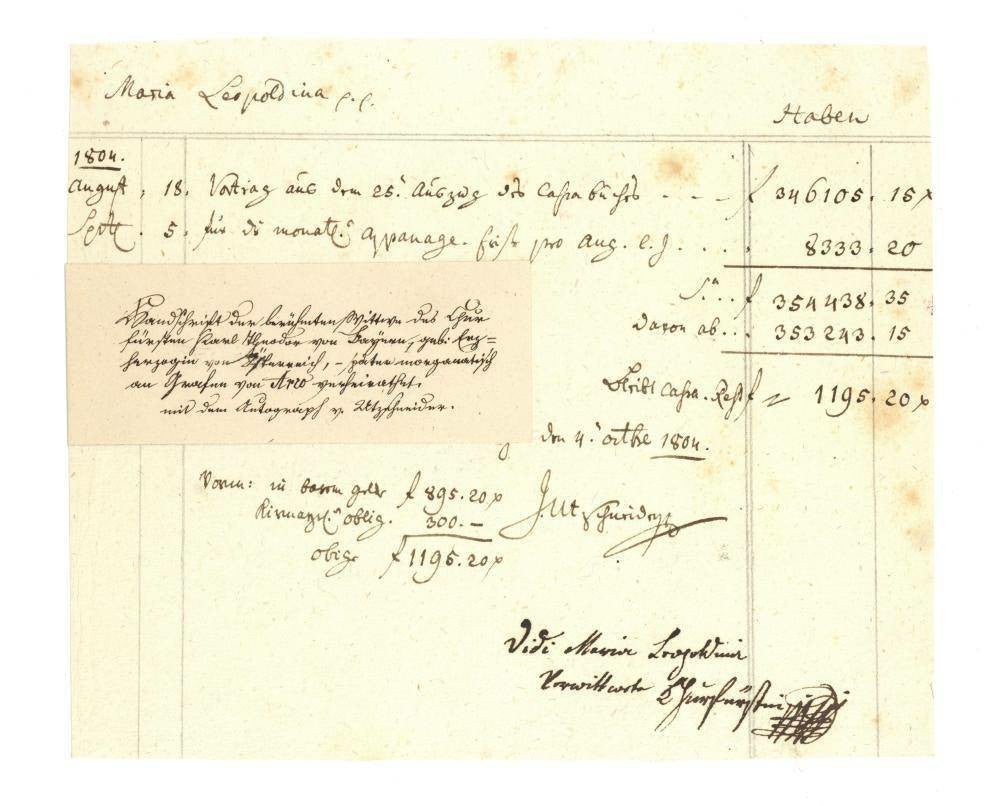 Maria Leopoldina
Haben
1804.
August 18. Vortrag aus dem 25. Auszug des Cassabuches - - - f 346105. 15 x
Septe. 5. für die monatl. Appanage-Frist pro Aug. l. J. . . . . 8333. 20
S. . . . f 354438. 35
davon ab . . . 353243. 15
Bleibt Cassa-Rest f 1195. 20 x
den 4. octbe 1804.
Handschrift der berühmten Wittwe des Chur
fürsten Karl Theodor von Bayern, geb. Erz=
herzogin von Österreich, – später morganatisch
an Grafen von Arco verheirathet.
mit dem Autograph v. Utzschneider.
in barem geld f 895. 20 x
oblig. 300. –
obige f 1195. 20 x
J. Utzschneider
Vidi Maria Leopoldina
Verwittwete Churfürstin